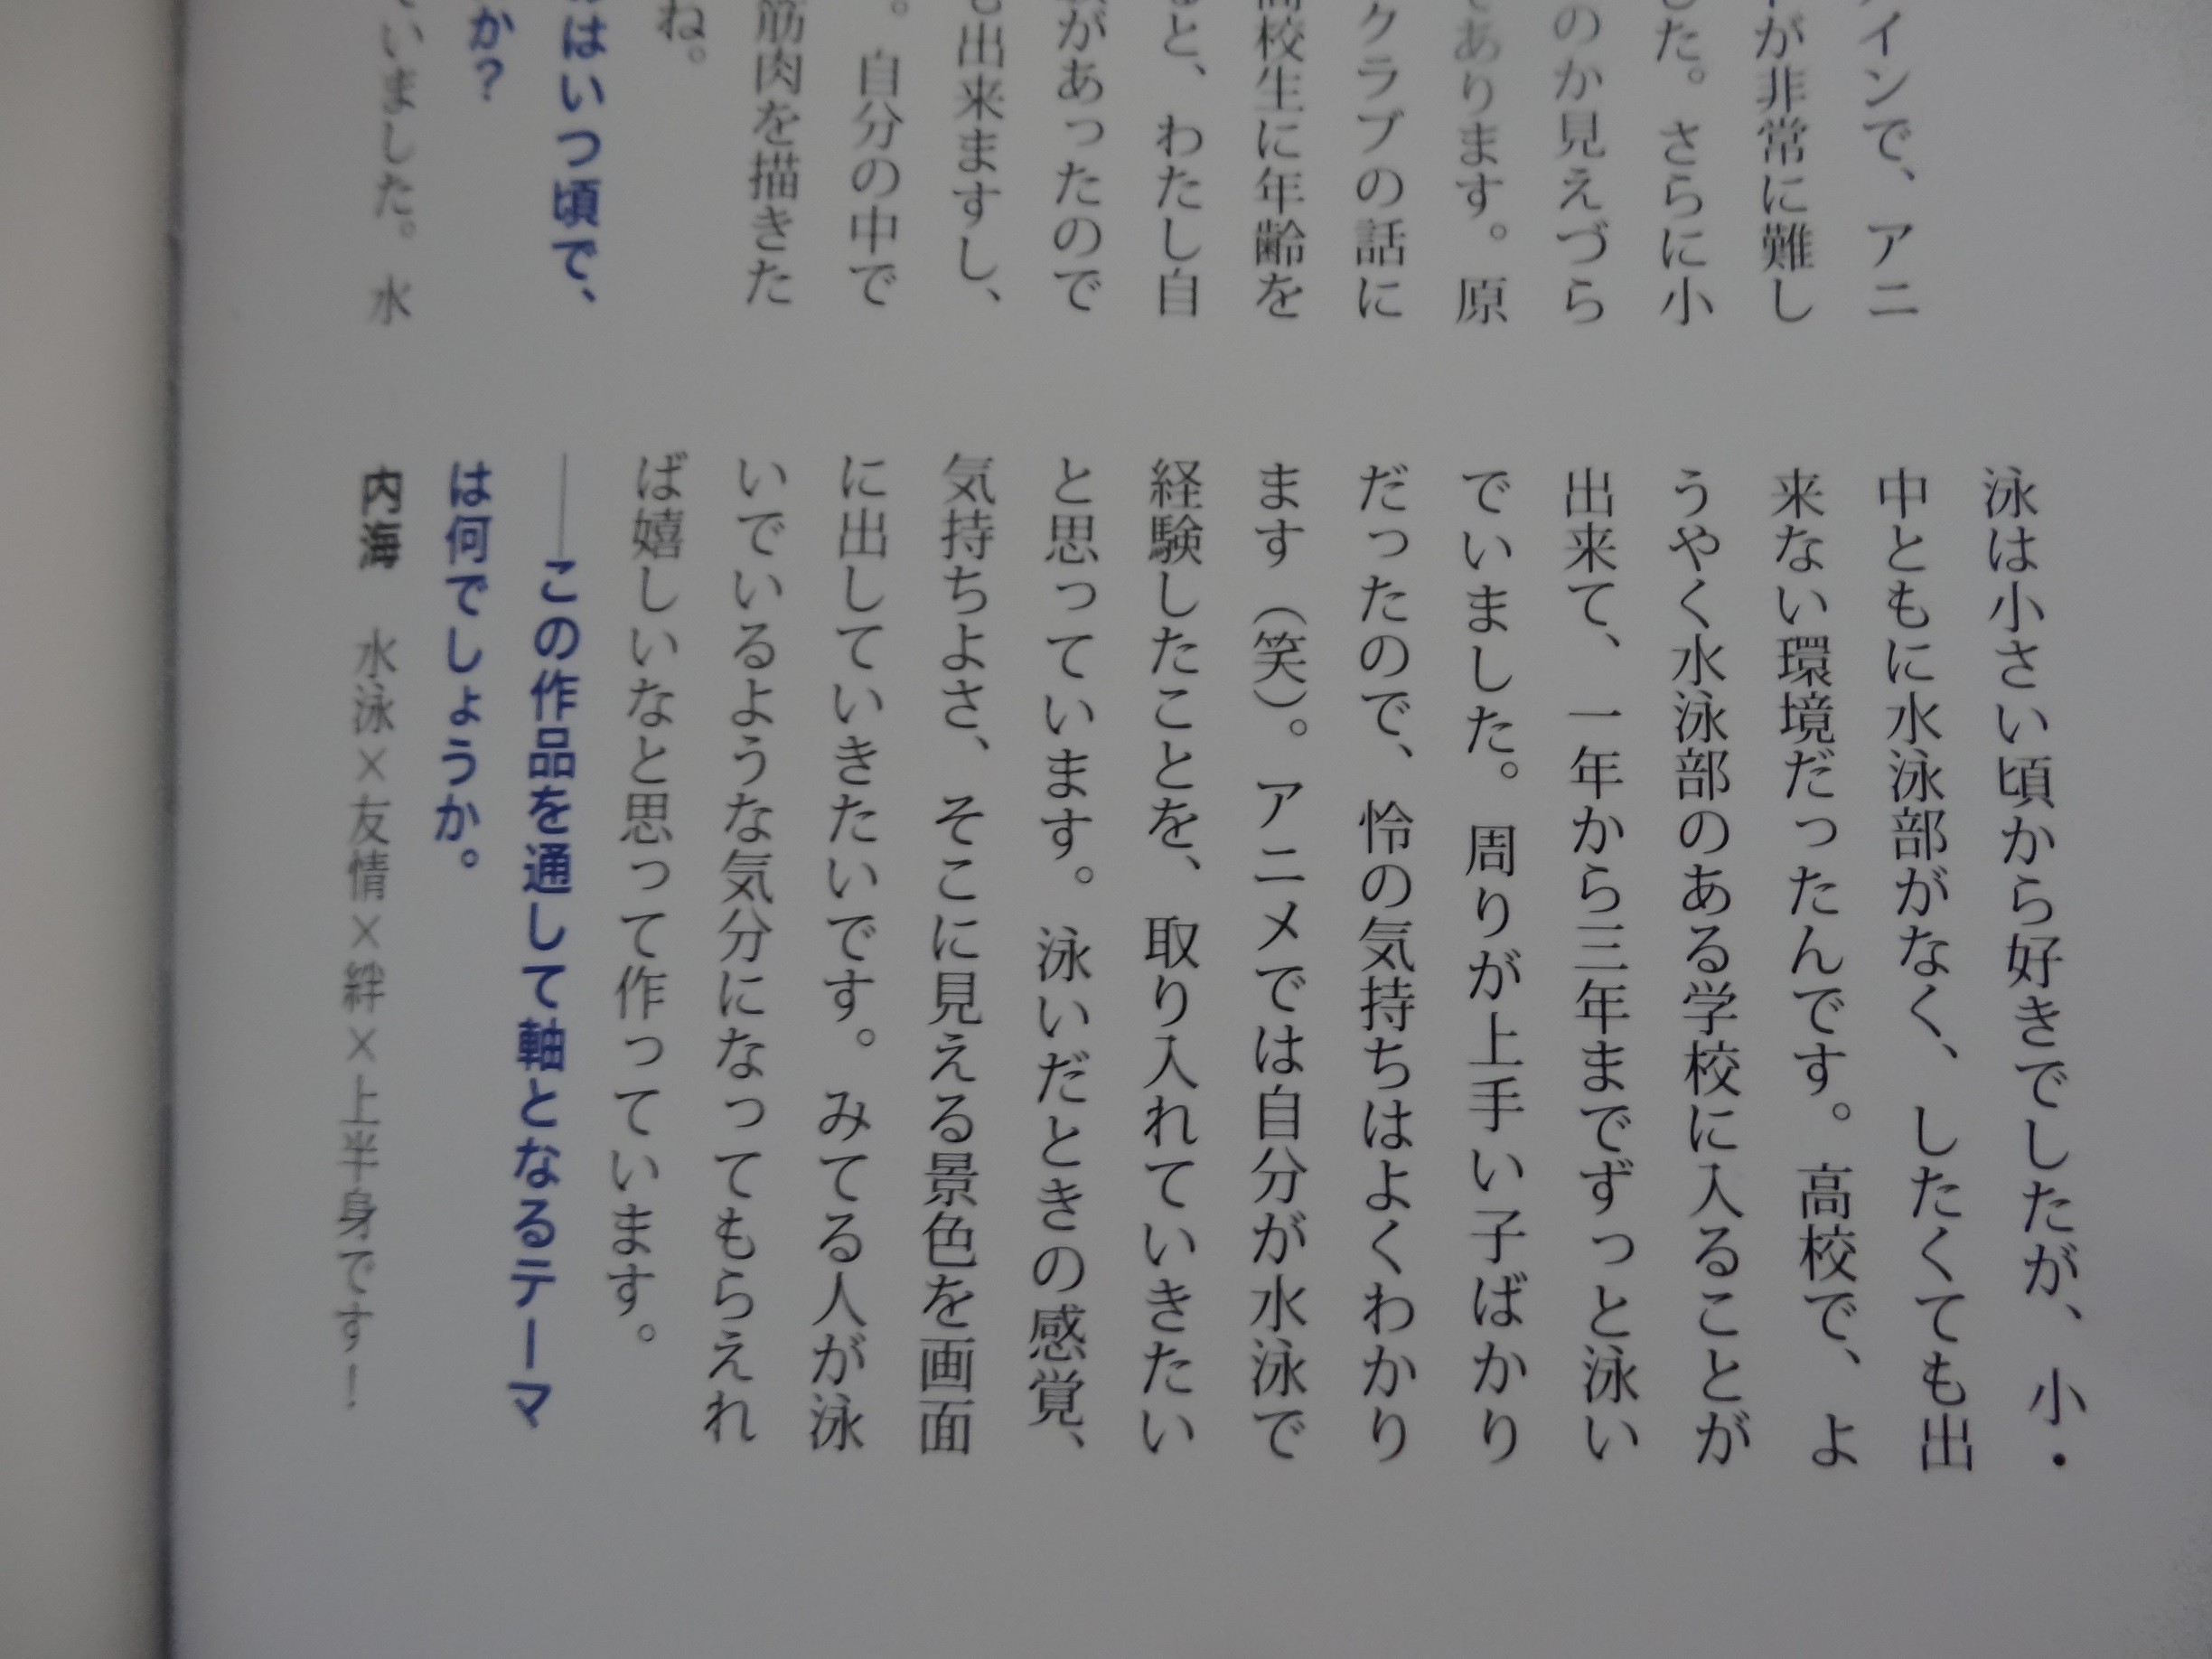 インで、アニ
が非常に難し
した。さらに小
のか見えづら
あります。原
クラブの話に
高校生に年齢を
と、わたし自
があったので
出来ますし、
。自分の中で
筋肉を描きた
ね。
はいつ頃で、
か?
いました。水
泳は小さい頃から好きでしたが、小・
中ともに水泳部がなく、したくても出
来ない環境だったんです。高校で、よ
うやく水泳部のある学校に入ることが
出来て、一年から三年までずっと泳い
でいました。周りが上手い子ばかり
だったので、怜の気持ちはよくわかり
ます（笑）。アニメでは自分が水泳で
経験したことを、取り入れていきたい
と思っています。泳いだときの感覚、
気持ちよさ、そこに見える景色を画面
に出していきたいです。みてる人が泳
いでいるような気分になってもらえれ
ば嬉しいなと思って作っています。
――この作品を通して軸となるテーマ
は何でしょうか。
内海　水泳×友情×絆×上半身です！